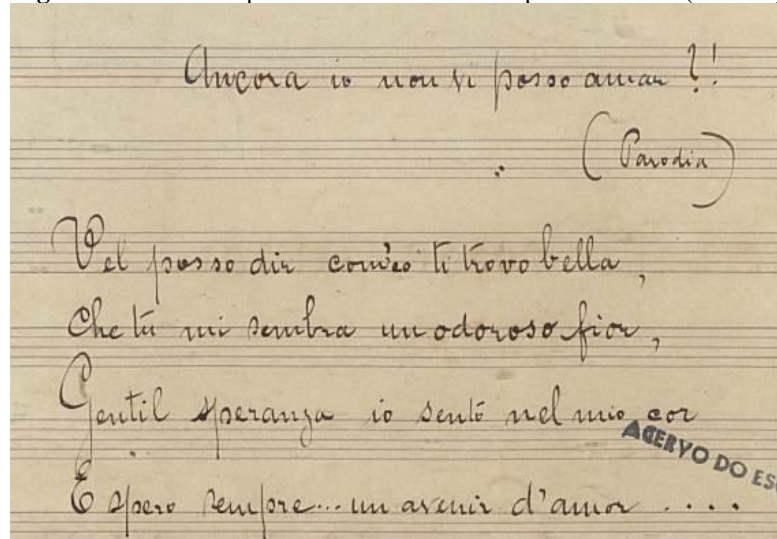 Ancora io non vi posso amar ?!
(Parodia)
Vel posso dir com'io ti trovo bella,
Che tu mi sembra un odoroso fior,
Gentil speranza io sento nel mio cor
E spero sempre... un avenir d'amor ....
ACERVO DO ES